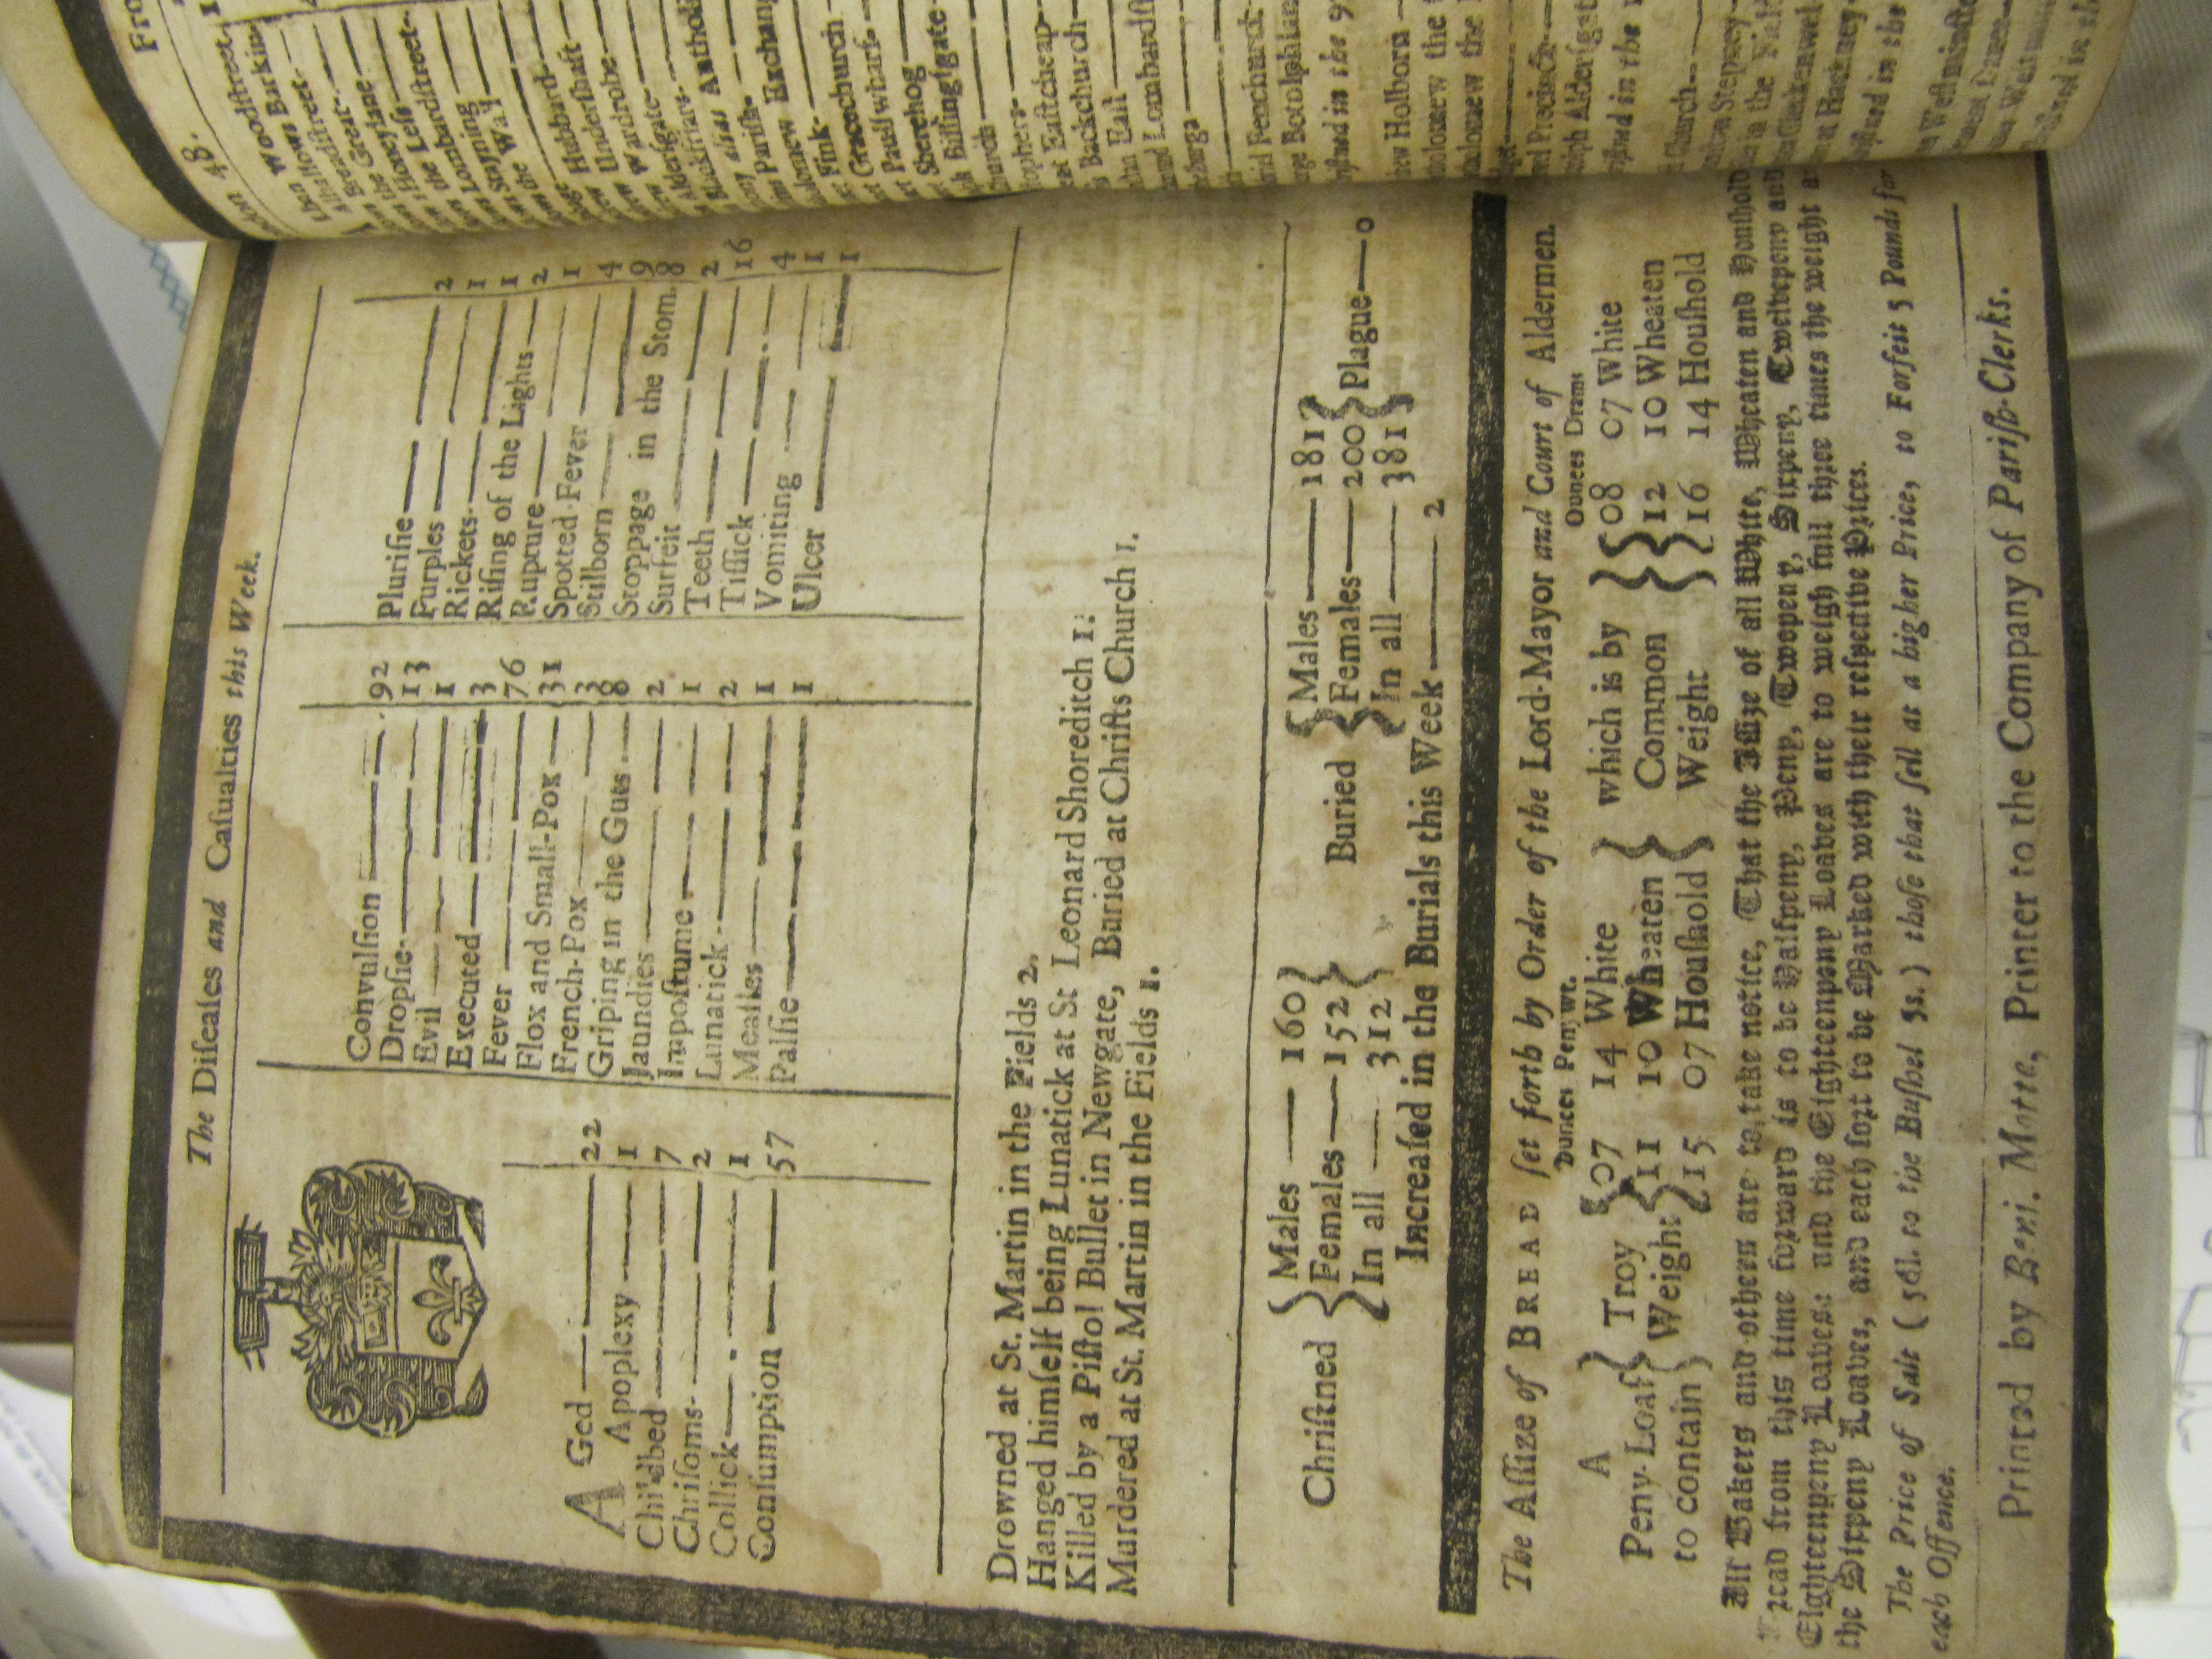 The Diſeaſes and Caſualties this Week.
AGed — 22
Apoplexy — 1
Childbed — 7
Chriſoms — 2
Collick — 1
Conſumption — 57
Convulſion — 92
Dropſie — 13
Evil — 1
Executed — 3
Fever — 76
Flox and Small-Pox — 31
French-Pox — 3
Griping in the Guts — 8
Jaundies — 2
Impoſtume — 1
Lunatick — 2
Meaſles — 1
Palſie — 1
Pluriſie — 2
Purples — 1
Rickets — 1
Riſing of the Lights — 2
Rupture — 1
Spotted Fever — 4
Stilborn — 9
Stoppage in the Stom. 8
Surfeit — 2
Teeth — 16
Tiſſick — 4
Vomiting — 1
Ulcer — 1
Drowned at St. Martin in the Fields 2.
Hanged himſelf being Lunatick at St Leonard Shoreditch 1.
Killed by a Piſtol Bullet in Newgate, Buried at Chriſts Church 1.
Murdered at St. Martin in the Fields 1.
Chriſtned { Males — 160 Females — 152 In all — 312 }
Buried { Males — 181 Females — 200 In all — 381 } Plague — 0
Increaſed in the Burials this Week — 2
The Aſſize of BREAD ſet forth by Order of the Lord-Mayor and Court of Aldermen.
Ounces Peny wt. Ounces Drams
A } Troy { 07 14 White } which is by { 08 07 White
Peny-Loaf } Weight { 11 10 Wheaten } Common { 12 10 Wheaten
to contain } { 15 07 Houſhold } Weight { 16 14 Houſhold
All Bakers and others are to take notice, That the Aſſize of all White, Wheaten and Houſhold
Bread from this time forward is to be Halfpeny, Peny, Twopeny, Sixpeny, Twelvepeny and
Eighteenpeny Loaves: and the Eighteenpeny Loaves are to weigh full three times the weight
the Sixpeny Loaves, and each ſort to be Marked with their reſpective Prices.
The Price of Salt (5d. to the Buſhel 3s.) thoſe that ſell at a higher Price, to Forfeit 5 Pounds for
each Offence.
Printed by Benj. Motte, Printer to the Company of Pariſh-Clerks.
48. Fro
Woodſtreet
Barkin
Breadſtreet
Great
Honeylane
Leſs
Lombardſtreet
Stayning
the Wall
Hubbard
Underſhaft
Wardrobe
Alderſgate
Blackfriars
alias Antholi
Pariſh
Exchang
Fink
Gracechurch
Paulſwharf
Sherehog
Billingſgate
Eaſtcheap
Backchurch
Eaſt
Lombardſt
Fenchurch
Botolphlane
in the 9
Holborn
the
the
Precinct
Alderſgat
in the
Church
Stepney
in the Field
Clerkenwel
at Hackney
in the
Weſtminſter
Danes